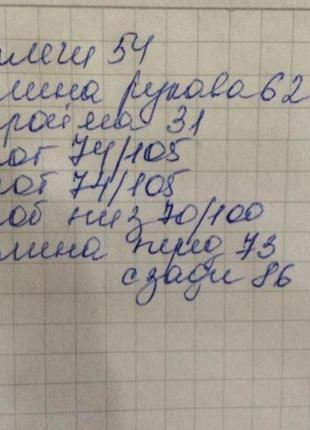 лечи 54
лина рукава 62
ройма 31
от 74/105
от 74/105
об низ 70/100
лина перед 73
сзади 86